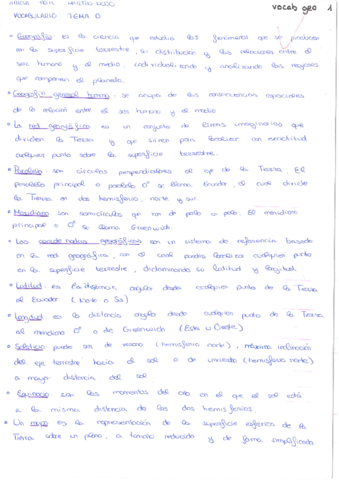 vocab geo 1
VOCABULARIO TEMA 0
• Geografía es la ciencia que estudia los fenómenos que se producen
en la superficie terrestre, su distribución y las relaciones entre el
ser humano y el medio, individualizando y analizando las regiones
que componen el planeta.
• Geografía general humana: se ocupa de las
de la relación entre el ser humano y el medio
• La red geográfica es un conjunto de líneas imaginarias que
dividen la Tierra y que sirven para localizar con exactitud
cualquier punto sobre la superficie terrestre.
• Paralelo: son círculos perpendiculares al eje de la Tierra. El
paralelo principal o paralelo 0° se llama Ecuador, el cual divide
la Tierra en dos hemisferios, norte y sur.
• Meridiano son semicírculos que van de polo a polo. El meridiano
principal o 0° se llama Greenwich.
• Las coordenadas geográficas son un sistema de referencia basado
en la red geográfica, con el cual puedes localizar cualquier punto
en la superficie terrestre, determinando su latitud y longitud.
• Latitud: es la distancia angular desde cualquier punto de la Tierra
al Ecuador (Norte o Sur)
• Longitud es la distancia angular desde cualquier punto de la Tierra
al meridiano 0° o de Greenwich (Este u Oeste)
• Solsticio: puede ser de verano (hemisferio norte), máxima inclinación
del eje terrestre hacia el sol o de invierno (hemisferio norte)
a mayor distancia del sol
• Equinoccio son los momentos del año en el que el sol está
a la misma distancia de los dos hemisferios.
• Un mapa es la representación de la superficie esférica de la
Tierra sobre un plano, a tamaño reducido y de forma simplificada